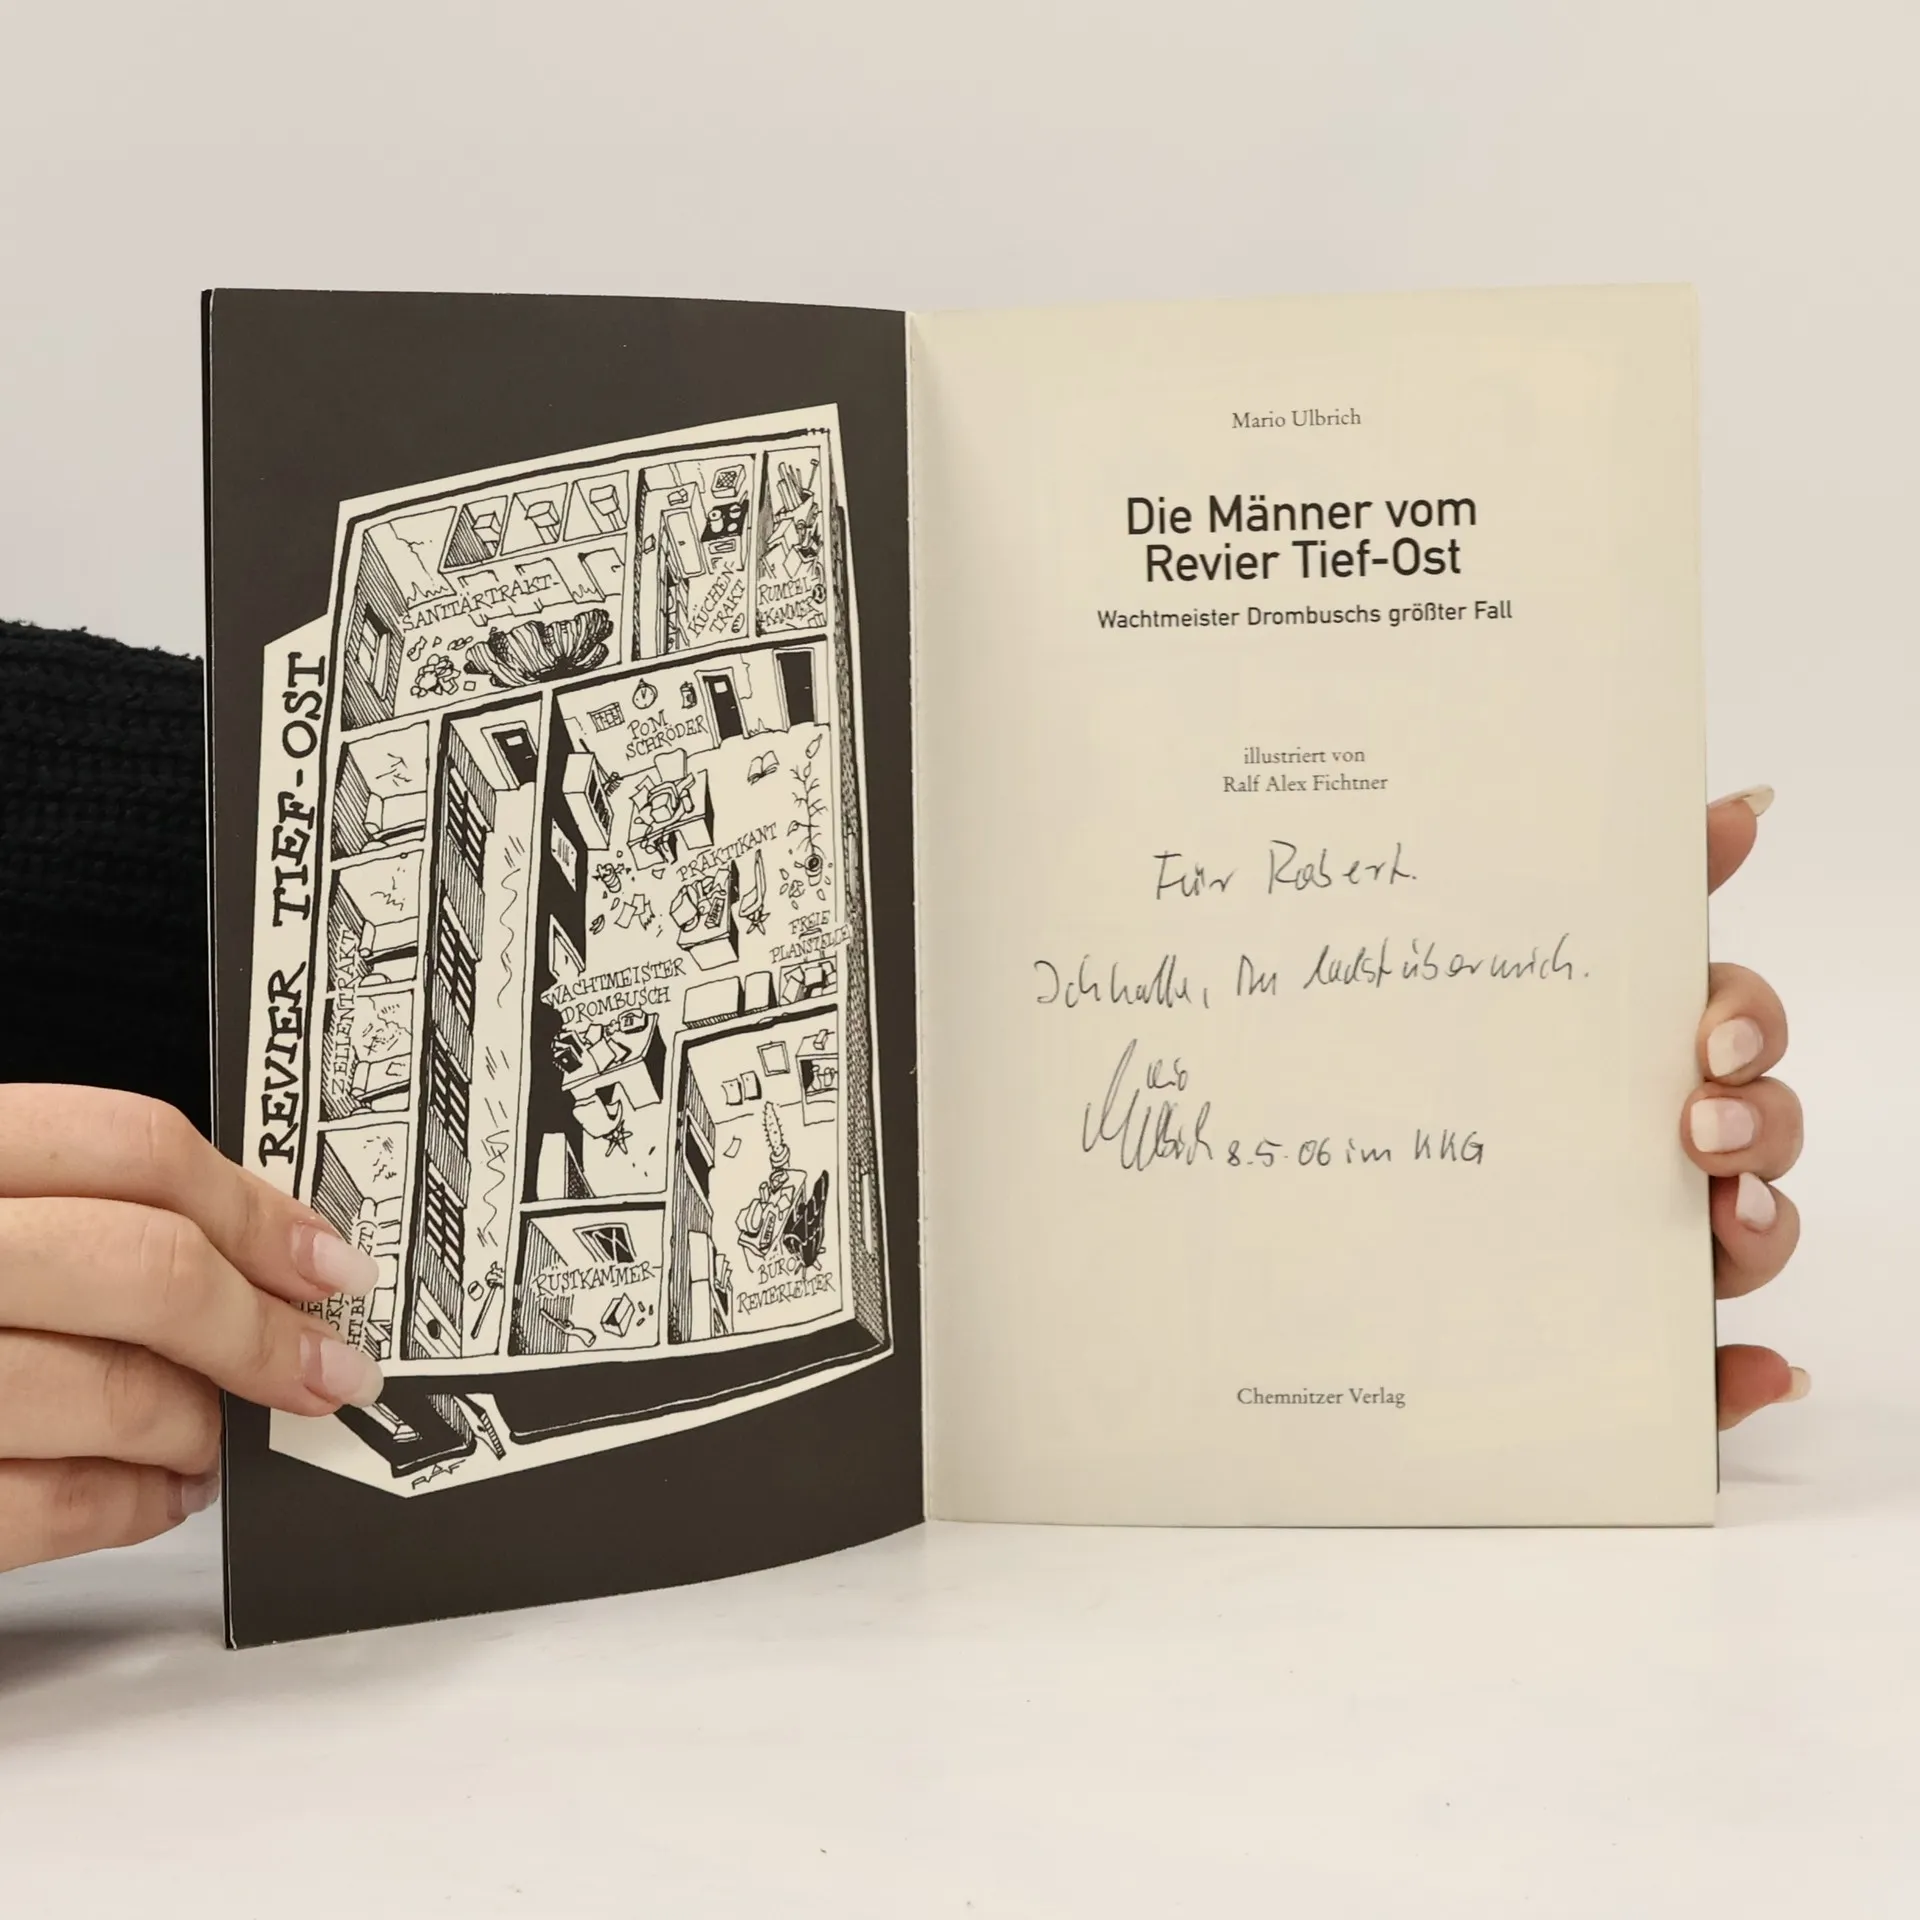 REVIER TIEF-OST
SANITÄRTRAKT
KÜCHEN-
TRAKT
RUMPEL-
KAMMER
POM
SCHRÖDER
PRAKTIKANT
FREIE
PLANSTELLE
WACHTMEISTER
DROMBUSCH
ZELLENTRAKT
RÜSTKAMMER
BÜRO
REVIERLEITER
RAF
Mario Ulbrich
Die Männer vom
Revier Tief-Ost
Wachtmeister Drombuschs größter Fall
illustriert von
Ralf Alex Fichtner
Für Robert.
Ich hoffe, Du lachst über mich.
Mario
Ulbrich 8.5.06 im KKG
Chemnitzer Verlag